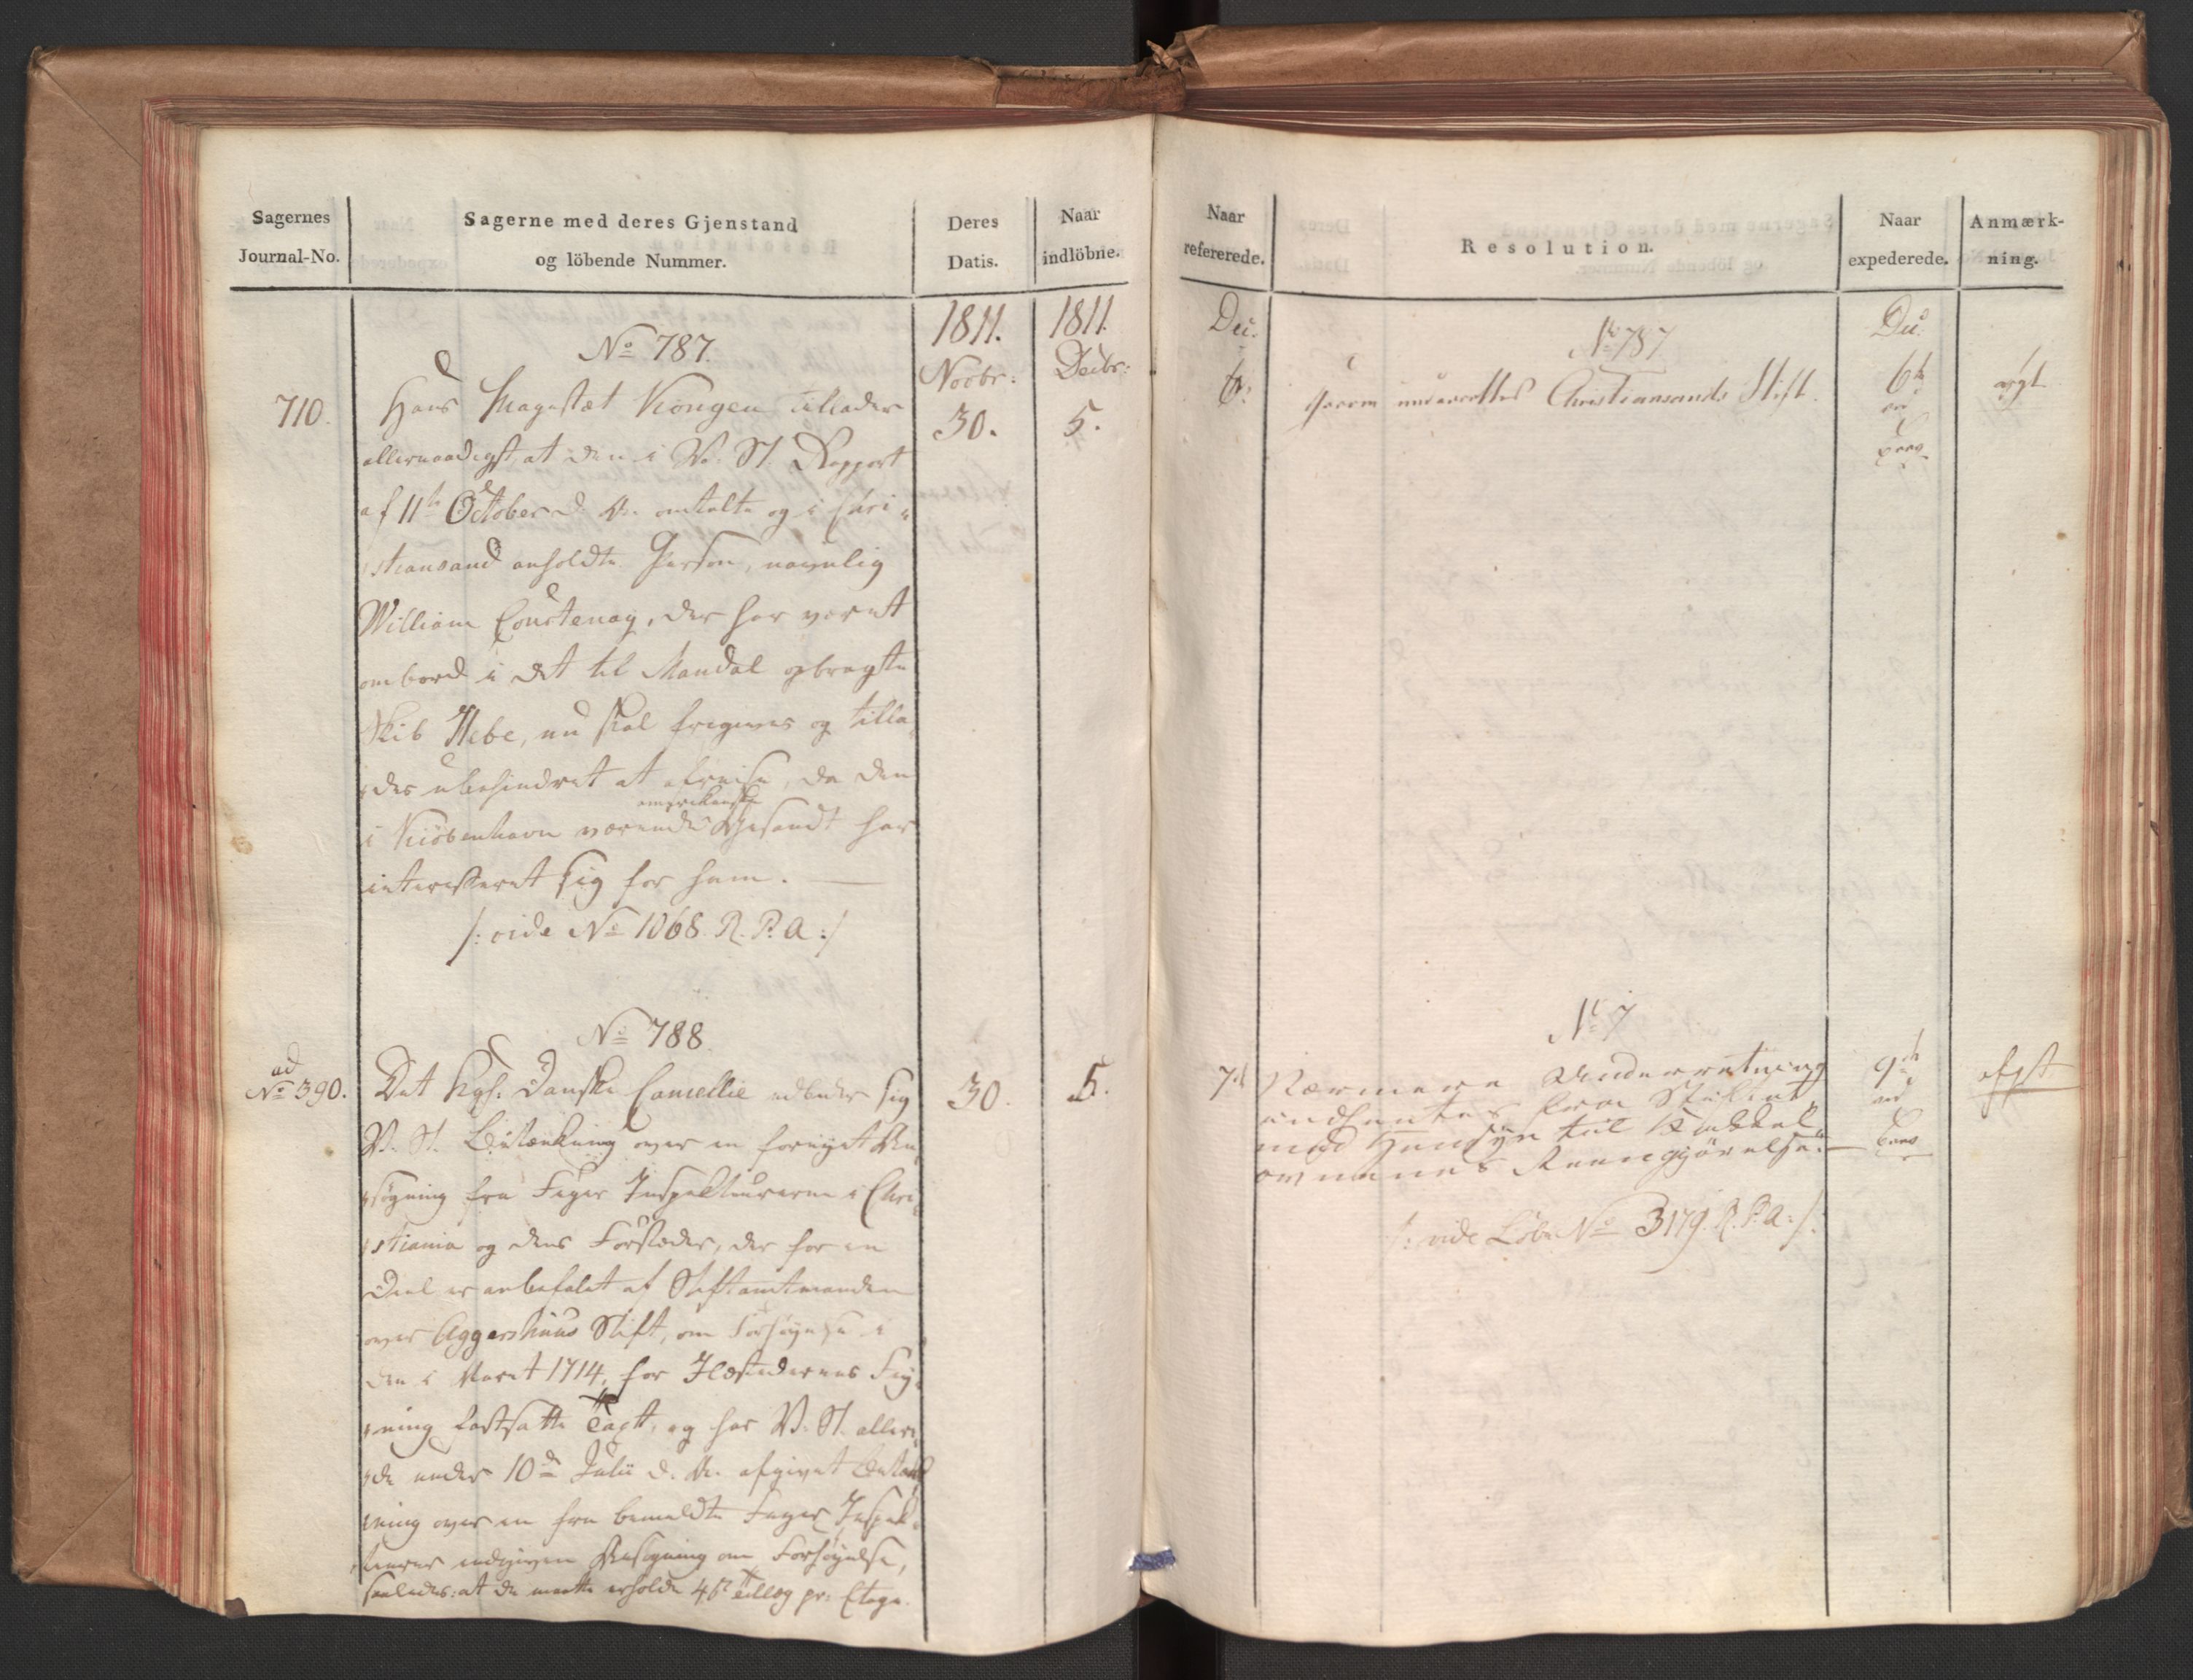 Sagernes
Journal-No.
Sagerne med deres Gjenstand
og löbende Nummer.
Deres
Datis.
Naar
indlöbne.
1811.
Novbr:
1811.
Decbr:
No 787.
710.
Hans Magestæt Kongen tillader
30.
5.
allernaadigst at den i V. St. Rapport
af 11te October d. A. omtalte og i Chri-
stiansand anholdte Person, navnlig
William Courtenay, der har været
ombord i det til Mandal opbragte
Skib Hebe, nu skal frigives og tilla-
des uhehindret at afreise, da den
i Kiöbenhavn værende amerikanske Gesandt har
interesseret sig for ham.
/: vide No 1068. R. P. A :/
No 788.
ad
No 390.
Det Kgl. Danske Cancellie udbeder sig
30.
5.
V. St. Betænkning over en fornyet An-
søgning fra Feyer Inspekteurerne i Chri-
stiania og dens Forstæder, der for en
Deel er anbefalet af Stiftamtmanden
over Aggershuus Stift, om Forhøyelse i
den i Aaret 1714, for Ildstedernes Fey-
ning fastsatte Taxt, og har V. St. allere-
de under 10de Julii d. A. afgivet Betænk-
ning over en fra bemeldte Feyer Inspek-
teurer indgiven Ansøgning om Forhøyelse,
saaledes: at de maatte erholde 4 s. tillæg pr: Etage.
Naar
refererede.
Resolution.
Naar
expederede.
Anmærk-
ning.
Dec.
6.
No 787
Herom underrettes Christiansands Stift.
Dec.
6te
No 7
7d
Nærmere Underretning
indhentes fra Stiftet
med Hensyn til Kakkel-
ovnenes Reengjörelse.
9de
afgt
/: vide Löbe No 3179. R. P. A :/